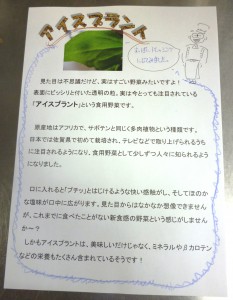 アイスプラント
見た目は不思議だけど、実はすごい野菜みたいですよ！
表面にビッシリと付いた透明の粒。実は今とっても注目されている
「アイスプラント」という食用野菜です。
原産地はアフリカで、サボテンと同じく多肉植物という種類です。
日本では佐賀県で初めて栽培され、テレビなどで取り上げられるうち
に注目されるようになり、食用野菜として少しずつ人々に知られるように
になりました。
口に入れると「プチッ」とはじけるような快い食感がし、そしてほのか
な塩味が口中に広がります。見た目からはなかなか想像できません
が、これまでに食べたことがない新食感の野菜という感じがしませんか
か～？
しかもアイスプラントは、美味しいだけじゃなく、ミネラルやβカロテン
などの栄養もたくさん含まれているそうです！